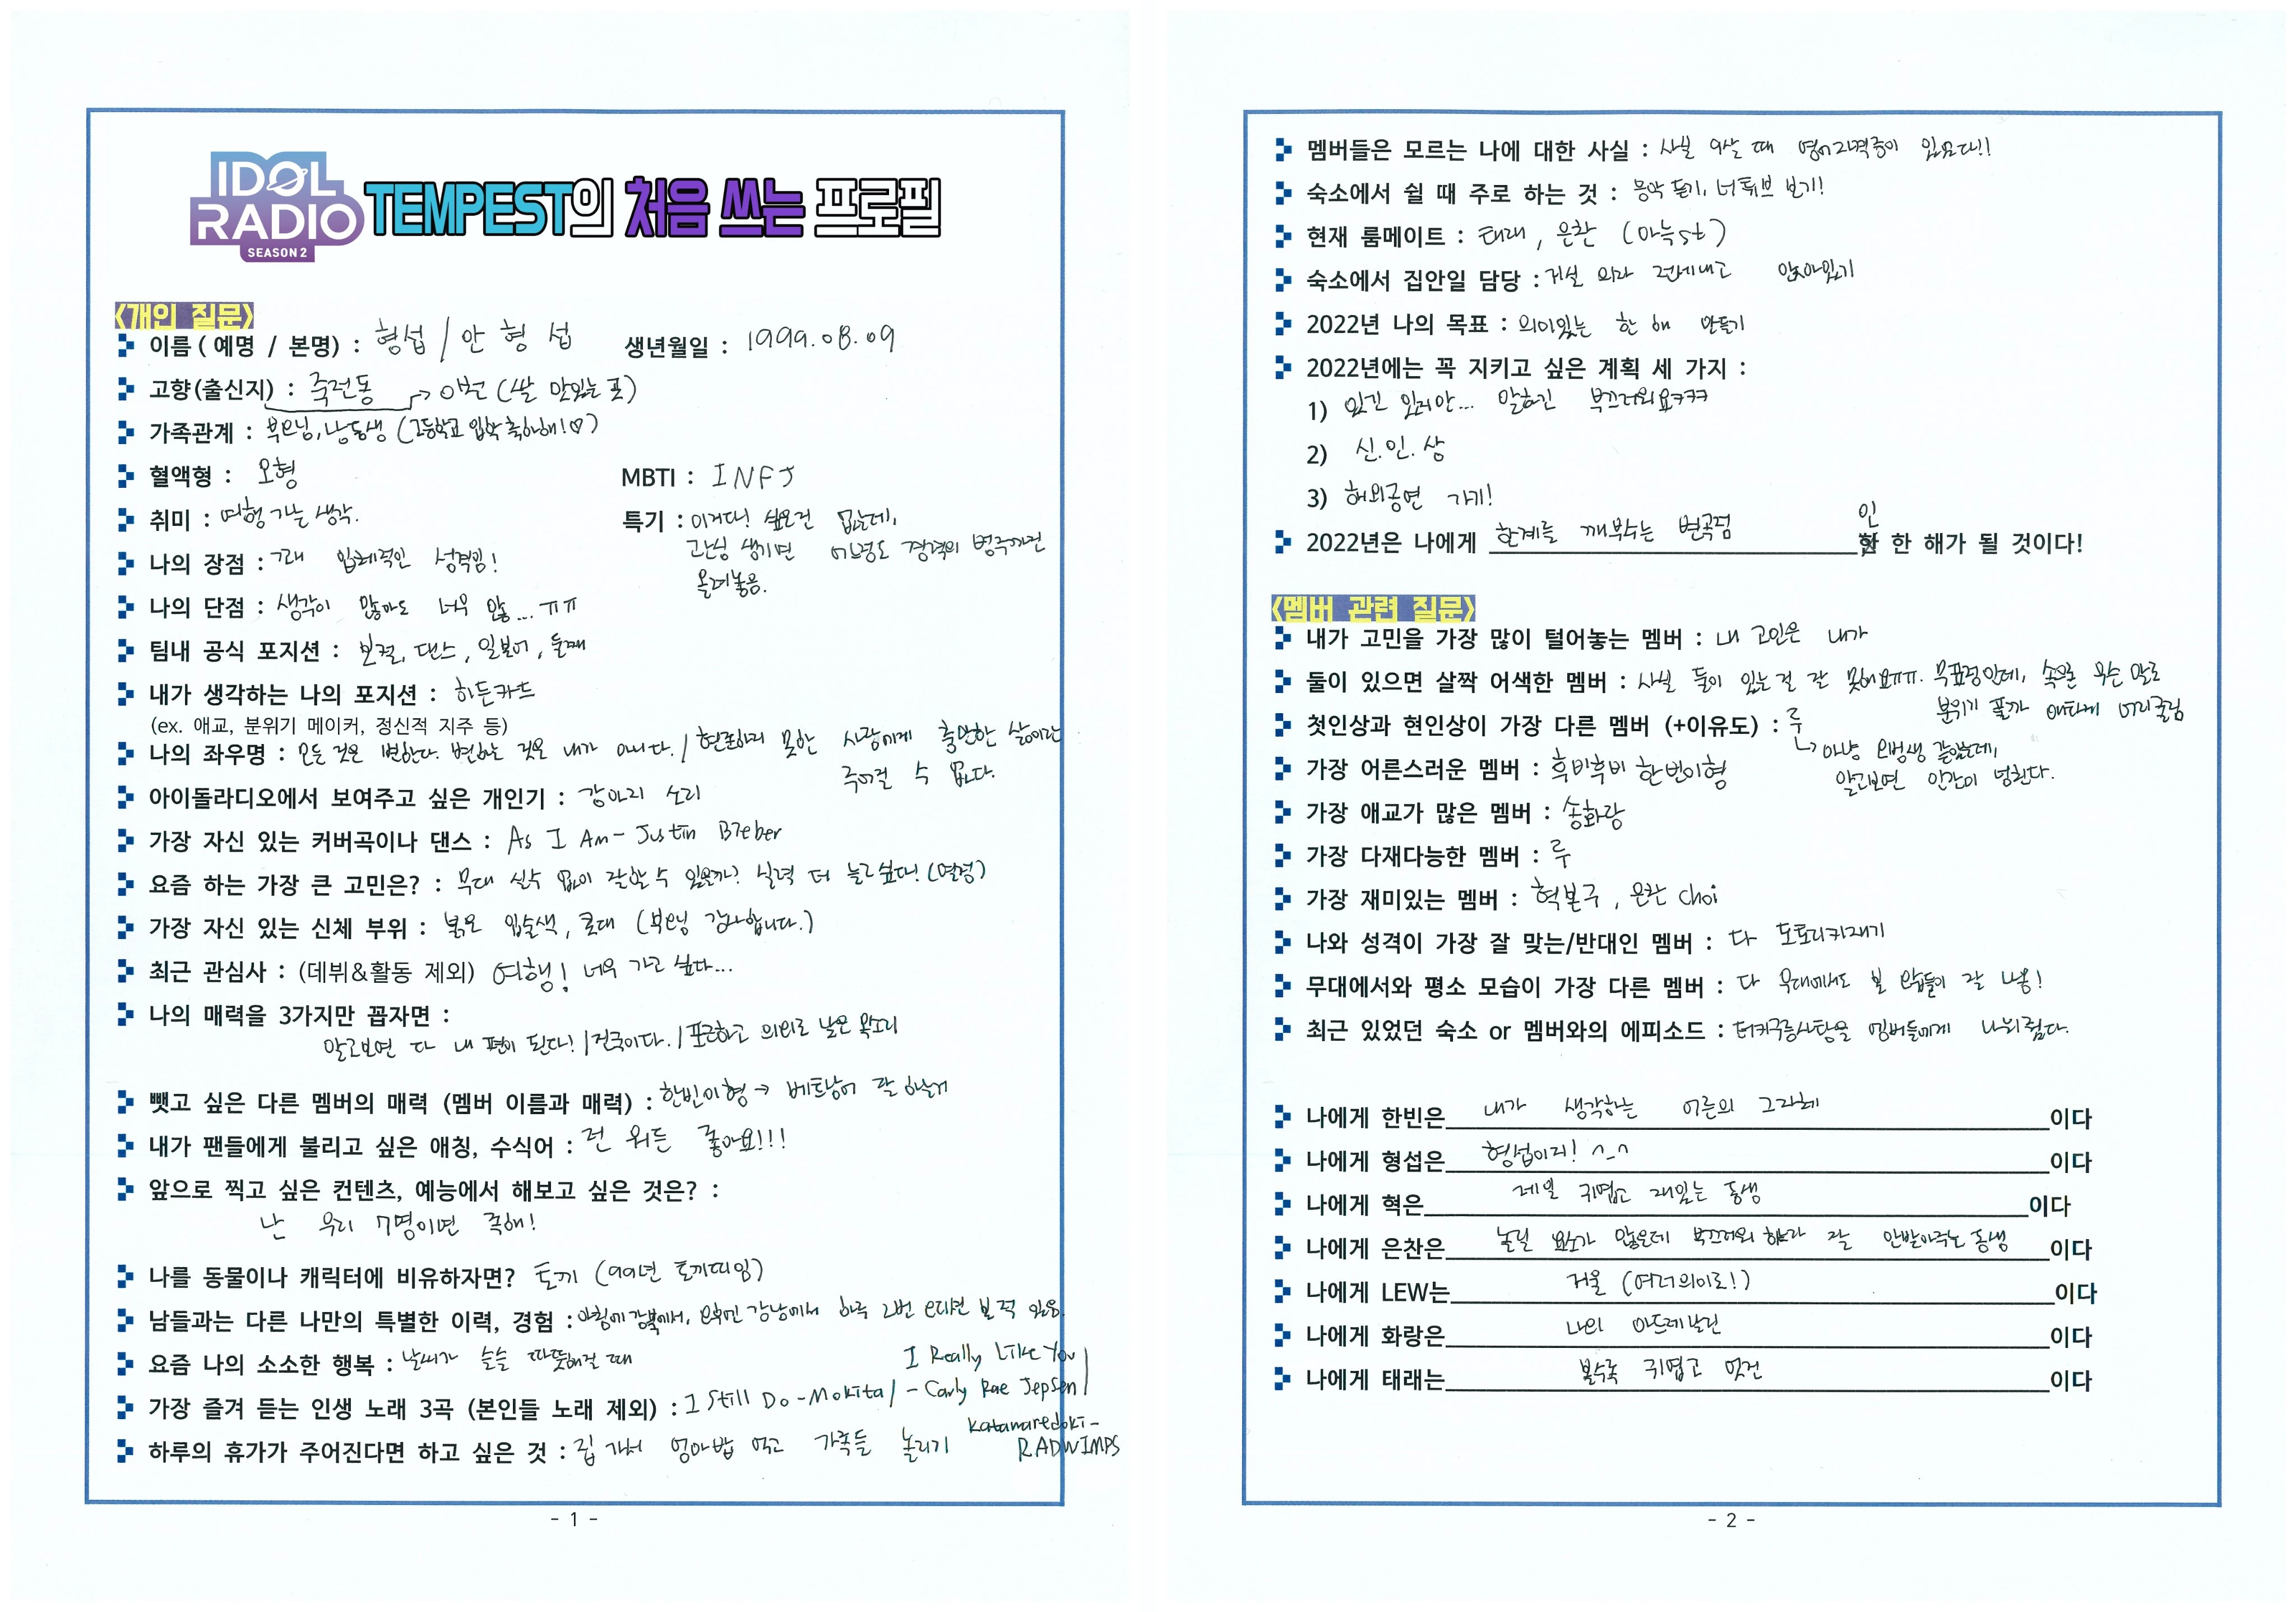 IDOL RADIO SEASON 2 TEMPEST의 처음 쓰는 프로필
<개인 질문>
이름 ( 예명 / 본명) : 형섭 / 안 형 섭 생년월일 : 1999.08.09
고향(출신지) : 죽전동 → 이천 (쌀 맛있는 곳)
가족관계 : 부모님, 남동생 (고등학교 입학 축하해!♡)
혈액형 : 오형 MBTI : INFJ
취미 : 여행 가는 생각. 특기 : 이거다! 싶은건 없는데,
관심 생기면 어느정도 경력의 범주까진
올려놓음.
나의 장점 : 꽤 입체적인 성격임!
나의 단점 : 생각이 많아도 너무 많...ㅠㅠ
팀내 공식 포지션 : 보컬, 댄스, 일본어, 둘째
내가 생각하는 나의 포지션 : 히든카드
(ex. 애교, 분위기 메이커, 정신적 지주 등)
나의 좌우명 : 모든 것은 변한다. 변하는 것은 내가 아니다. / 현존하지 못한 사람에게 충만한 삶이란
주어질 수 없다.
아이돌라디오에서 보여주고 싶은 개인기 : 강아지 소리
가장 자신 있는 커버곡이나 댄스 : As I Am - Justin Bieber
요즘 하는 가장 큰 고민은? : 무대 실수 없이 잘할 수 있을까? 실력 더 늘고 싶다! (열정)
가장 자신 있는 신체 부위 : 붉은 입술색, 콧대 (부모님 감사합니다.)
최근 관심사 : (데뷔&활동 제외) 여행! 너무 가고 싶다...
나의 매력을 3가지만 꼽자면 :
알고보면 다 내 편이 된다! / 진국이다. / 포근하고 의외로 낮은 목소리
뺏고 싶은 다른 멤버의 매력 (멤버 이름과 매력) : 한빈이형 → 베트남어 잘 하는거
내가 팬들에게 불리고 싶은 애칭, 수식어 : 전 뭐든 좋아요!!!
앞으로 찍고 싶은 컨텐츠, 예능에서 해보고 싶은 것은? :
난 우리 7명이면 족해!
나를 동물이나 캐릭터에 비유하자면? 토끼 (99년 토끼띠임)
남들과는 다른 나만의 특별한 이력, 경험 : 아침에 강북에서, 오후엔 강남에서 하루 2번 오디션 본 적 있음.
요즘 나의 소소한 행복 : 날씨가 슬슬 따뜻해질 때
가장 즐겨 듣는 인생 노래 3곡 (본인들 노래 제외) : I Still Do - Mokita / I Really Like You - Carly Rae Jepsen /
Katawaredoki - RADWIMPS
하루의 휴가가 주어진다면 하고 싶은 것 : 집 가서 엄마밥 먹고 가족들 놀리기
- 1 -
멤버들은 모르는 나에 대한 사실 : 사실 9살 때 영어자격증이 있었다!!
숙소에서 쉴 때 주로 하는 것 : 음악 듣기, 너튜브 보기!
현재 룸메이트 : 태래, 은찬 (아늑st)
숙소에서 집안일 담당 : 거실 의자 전세내고 앉아있기
2022년 나의 목표 : 의미있는 한 해 만들기
2022년에는 꼭 지키고 싶은 계획 세 가지 :
1) 있긴 있지만... 말하긴 부끄러워요ㅋㅋㅋ
2) 신.인.상
3) 해외공연 가기!
2022년은 나에게 한계를 깨부수는 변곡점 인 한 해가 될 것이다!
<멤버 관련 질문>
내가 고민을 가장 많이 털어놓는 멤버 : 내 고민은 내가
둘이 있으면 살짝 어색한 멤버 : 사실 둘이 있는 걸 잘 못해요ㅠㅠ. 무표정인데, 속으론 무슨 말로
분위기 풀까 애타게 머리굴림
첫인상과 현인상이 가장 다른 멤버 (+이유도) : 루
↳ 마냥 모범생 같았는데,
알고보면 인간이 넘친다.
가장 어른스러운 멤버 : 훅비훅비 한빈이형
가장 애교가 많은 멤버 : 송화랑
가장 다재다능한 멤버 : 루
가장 재미있는 멤버 : 혁본구, 은찬 choi
나와 성격이 가장 잘 맞는/반대인 멤버 : 다 도토리키재기
무대에서와 평소 모습이 가장 다른 멤버 : 다 무대에서도 본 모습들이 잘 나옴!
최근 있었던 숙소 or 멤버와의 에피소드 : 터키구름사탕을 멤버들에게 나눠줬다.
나에게 한빈은 내가 생각하는 어른의 그자체 이다
나에게 형섭은 형섭이지! ^_^ 이다
나에게 혁은 제일 귀엽고 재밌는 동생 이다
나에게 은찬은 놀릴 요소가 많은데 부끄러워 하느라 잘 안받아주는 동생 이다
나에게 LEW는 거울 (여러의미로!) 이다
나에게 화랑은 나의 아드레날린 이다
나에게 태래는 볼수록 귀엽고 멋진 이다
- 2 -